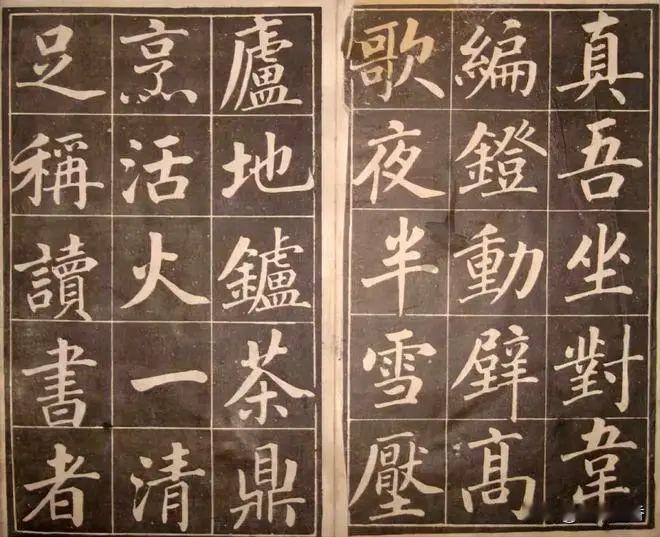 真吾坐對韋
編鐙動壁高
歌夜半雪壓
廬地鑪茶鼎
烹活火一清
足稱讀書者